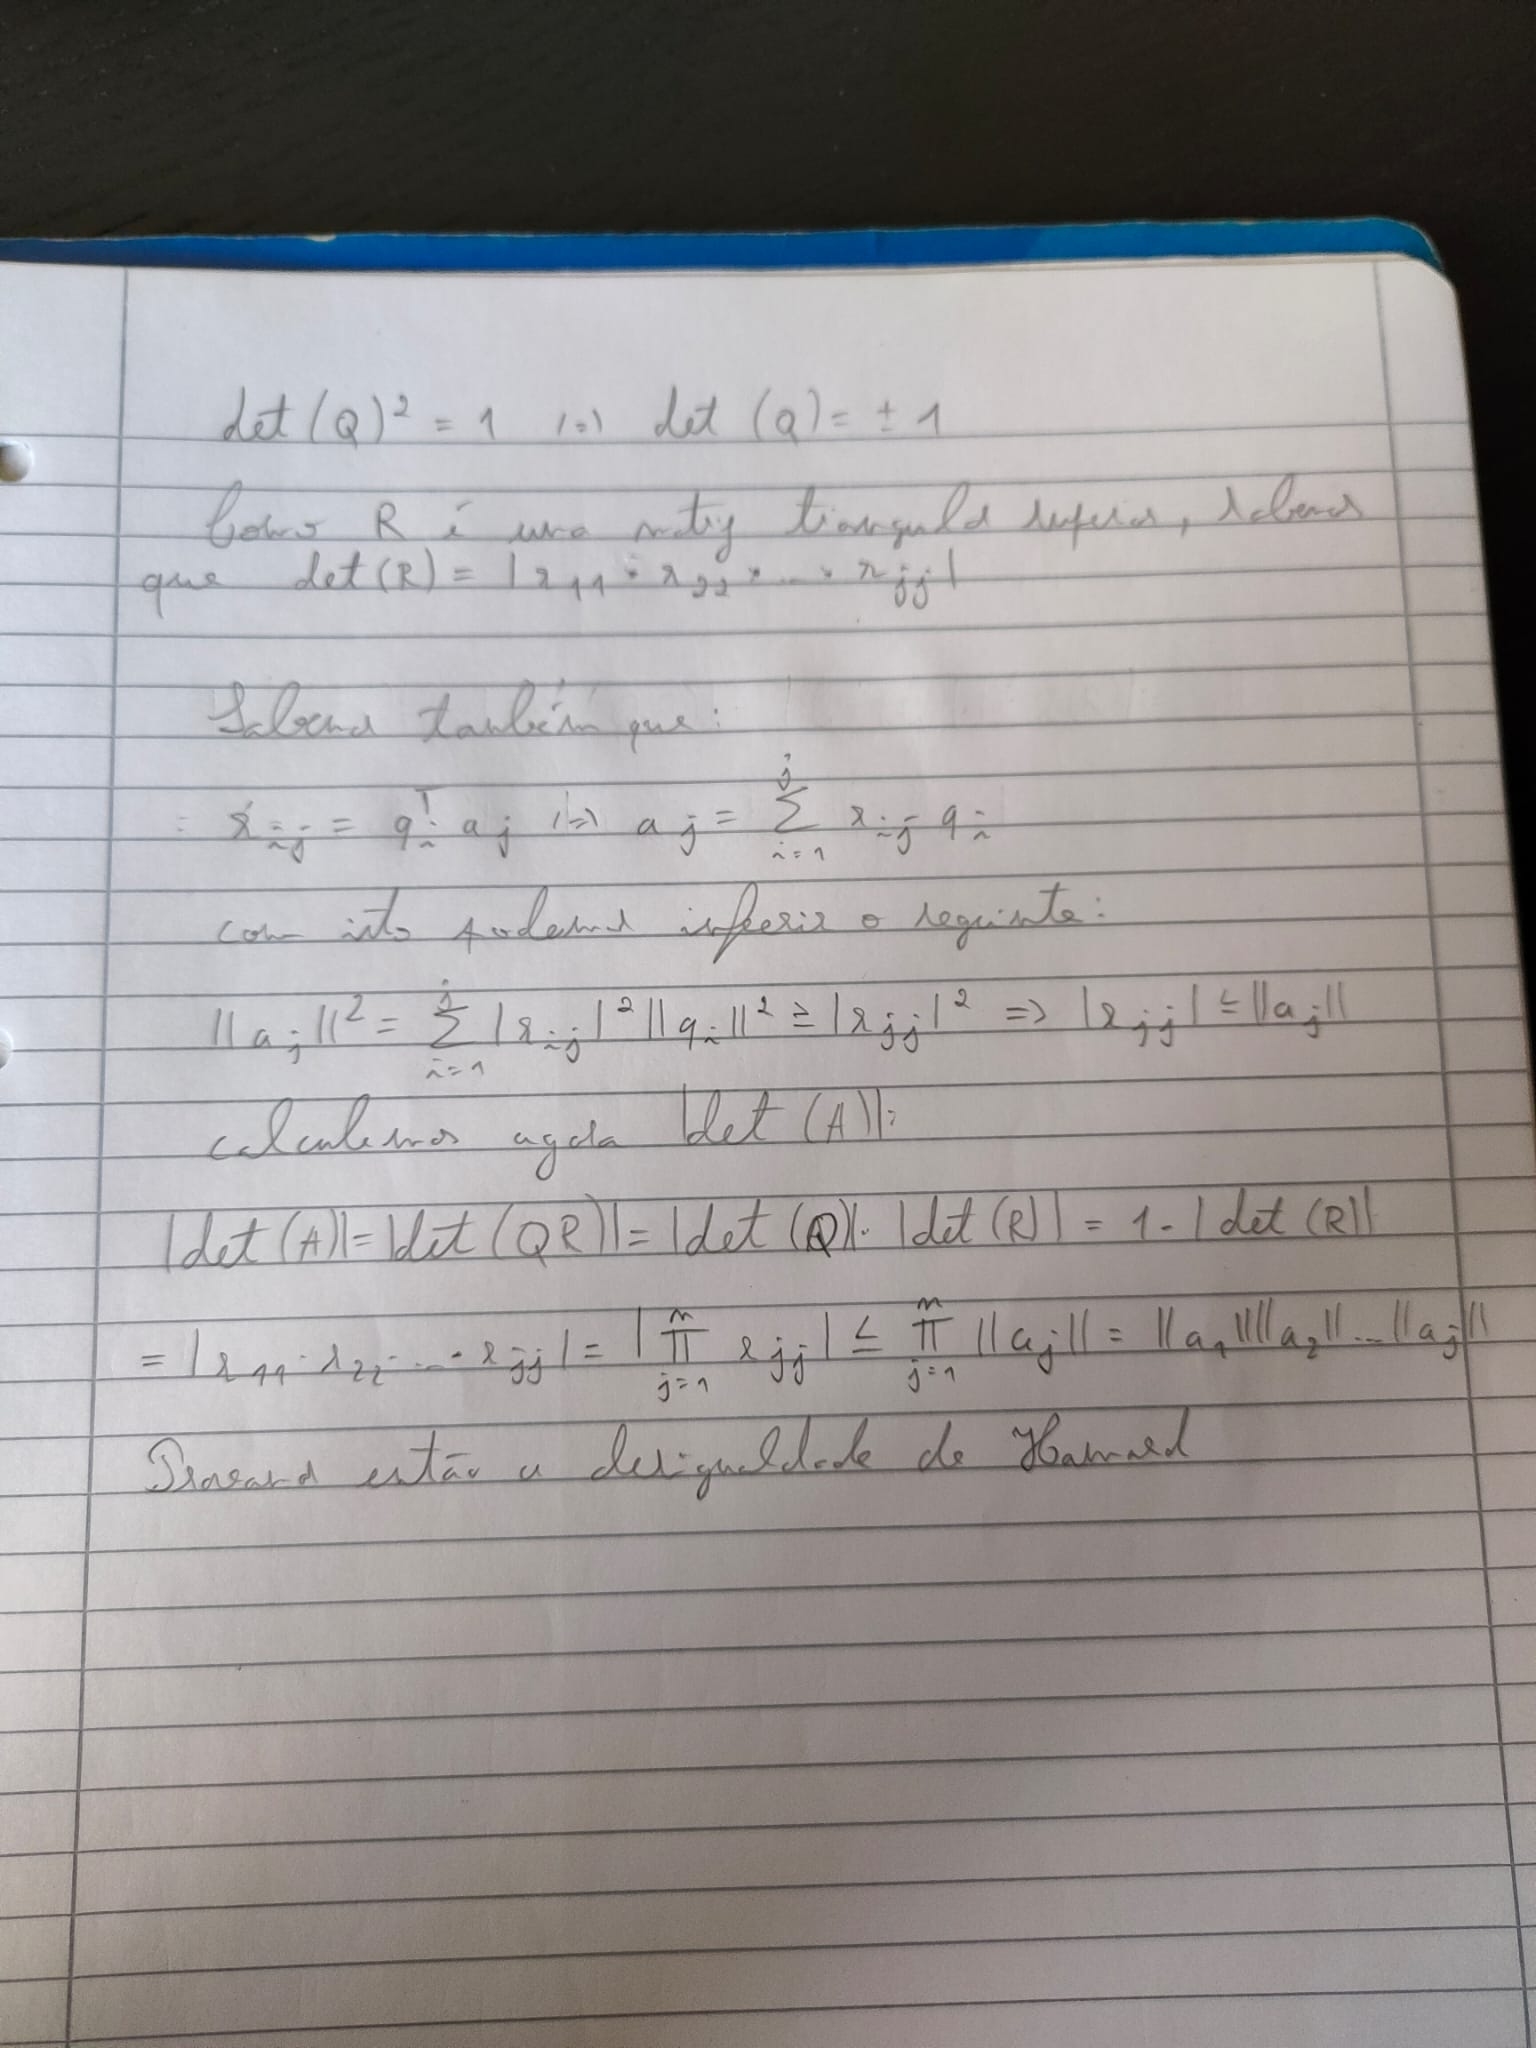 det(Q)² = 1 (=) det(Q) = ± 1
Como R é uma matriz triangular superior, sabemos
que det(R) = |r₁₁ · r₂₂ · ... · rⱼⱼ|
Sabemos também que:
rᵢⱼ = qᵢᵀ aⱼ (=) aⱼ = ∑ᵢ₌₁ʲ rᵢⱼ qᵢ
com isto podemos inferir o seguinte:
||aⱼ||² = ∑ᵢ₌₁ʲ |rᵢⱼ|² ||qᵢ||² ≥ |rⱼⱼ|² => |rⱼⱼ| ≤ ||aⱼ||
calculemos agora |det(A)|:
|det(A)| = |det(QR)| = |det(Q)| · |det(R)| = 1 · |det(R)|
= |r₁₁ · r₂₂ · ... · rⱼⱼ| = |∏ⱼ₌₁ⁿ rⱼⱼ| ≤ ∏ⱼ₌₁ⁿ ||aⱼ|| = ||a₁|| ||a₂|| ... ||aⱼ||
Provando então a desigualdade de